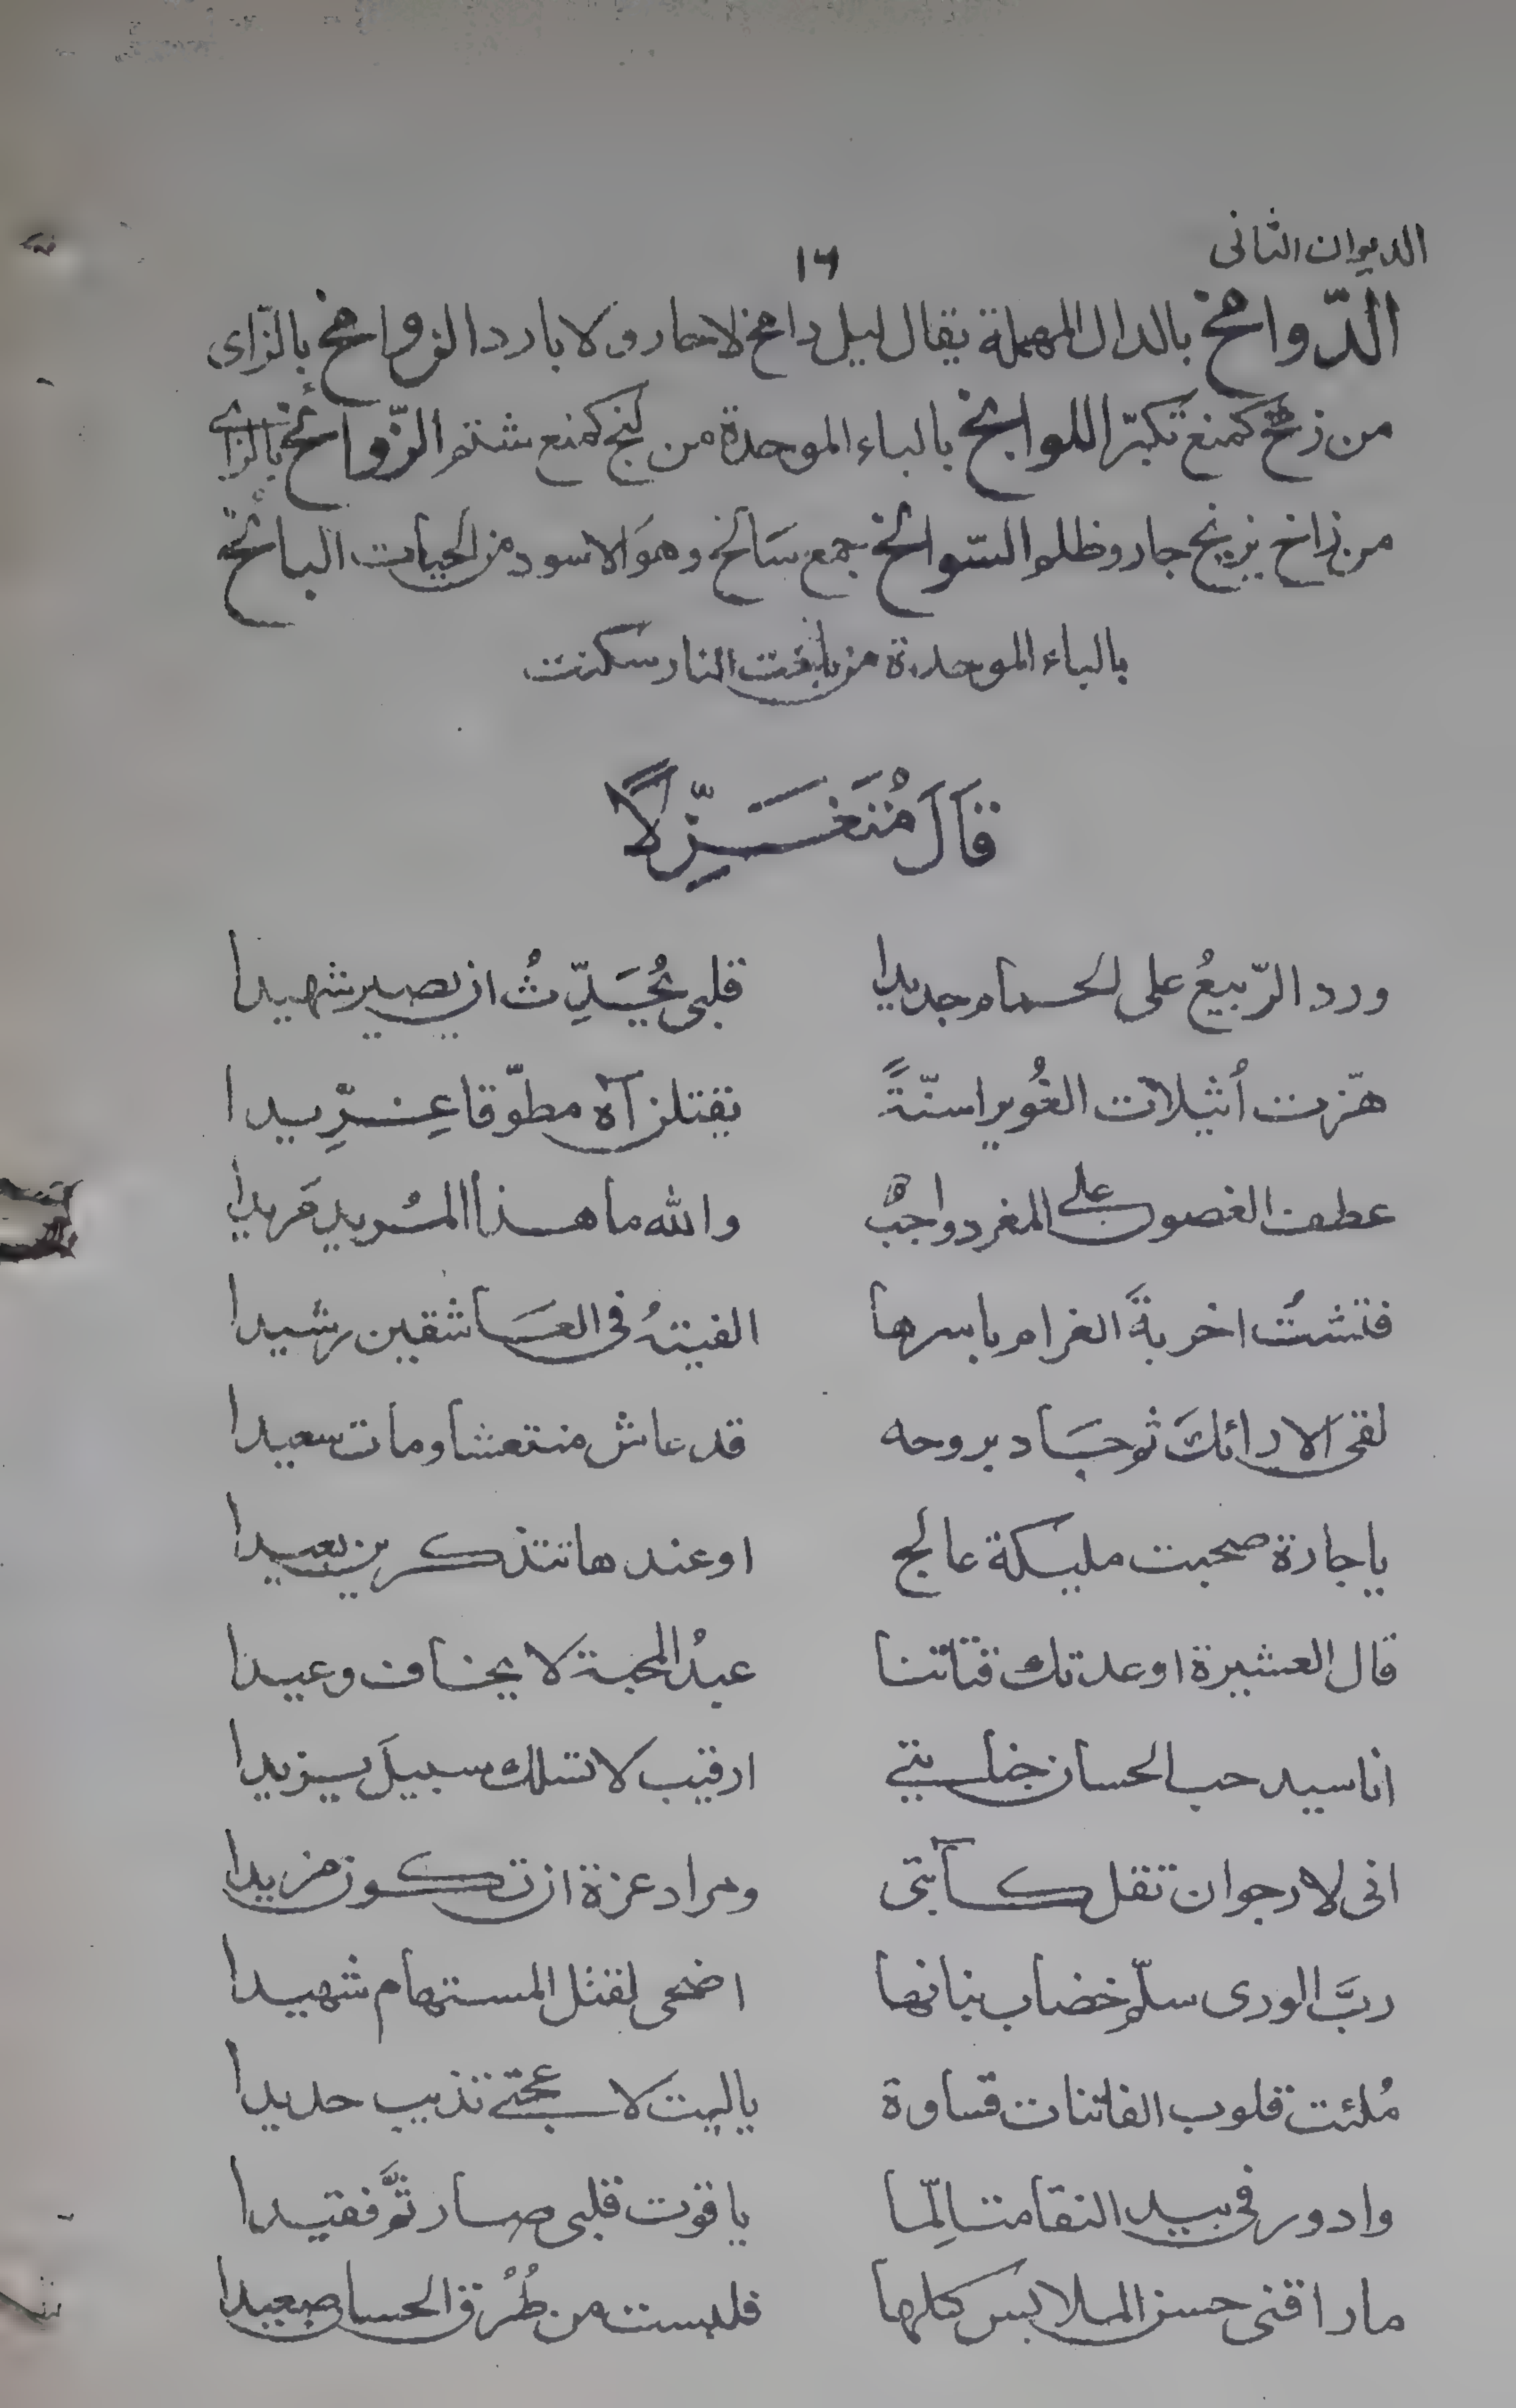 الديوان الثانى
١٦
الدّوامخ بالدال المهملة يقال ليل دامخ لا حار ولا بارد الزوامخ بالزاى
من زمخ كمنع تكبّر اللوابخ بالباء الموحدة من لبخ كمنع شتم الزّوائخ بالزاى
من زاخ يزيخ جار وظلم السّوالخ جمع سَالخ وهوَ الاسود من الحيات البائخة
بالباء الموحدة من باخت النار سكنت
قَالَ مُتَغَزِّلًا
ورد الرّبيعُ على الحسام جديدا
قلبى يُحَدِّثُ ان يصير شهيدا
هزّت أثيلات الغُوير اسنّةً
يقتلن آه مطوّقا غِرِّيدا
عطف الغصون على المغرد واجبٌ
والله ما هذا المُريد مَريدا
فتشتُ اخربةَ الغرام باسرها
الفيتهُ فى العَاشقين رشيدا
لقى الارائكَ ثم جَاد بروحه
قد عاش منتعشا ومات سعيدا
يا جارة صحبت مليكة عالج
او عندها تتذكرين بعيدا
قال العشيرة اوعدتك فتاتنا
عبدُ المحبة لا يخاف وعيدا
انا سيد حب الحسان جنايتى
ارقيب لا تسلك سبيلَ يزيدا
انى لارجو ان تقل كآبتى
ومراد عزة ان تكون مزيدا
ربَّ الورى سلّم خضاب بنانها
اضحى لقتل المستهام شهيدا
مُلئت قلوب الفاتنات قساوة
يا ليت لاعجتى تذيب حديدا
وادور فى بيد النقا متالِمّا
ياقوت قلبى صار ثَمَّ فقيدا
ما راقنى حسن الملابس كلها
فلبست من طُرُق الحسان صعيدا